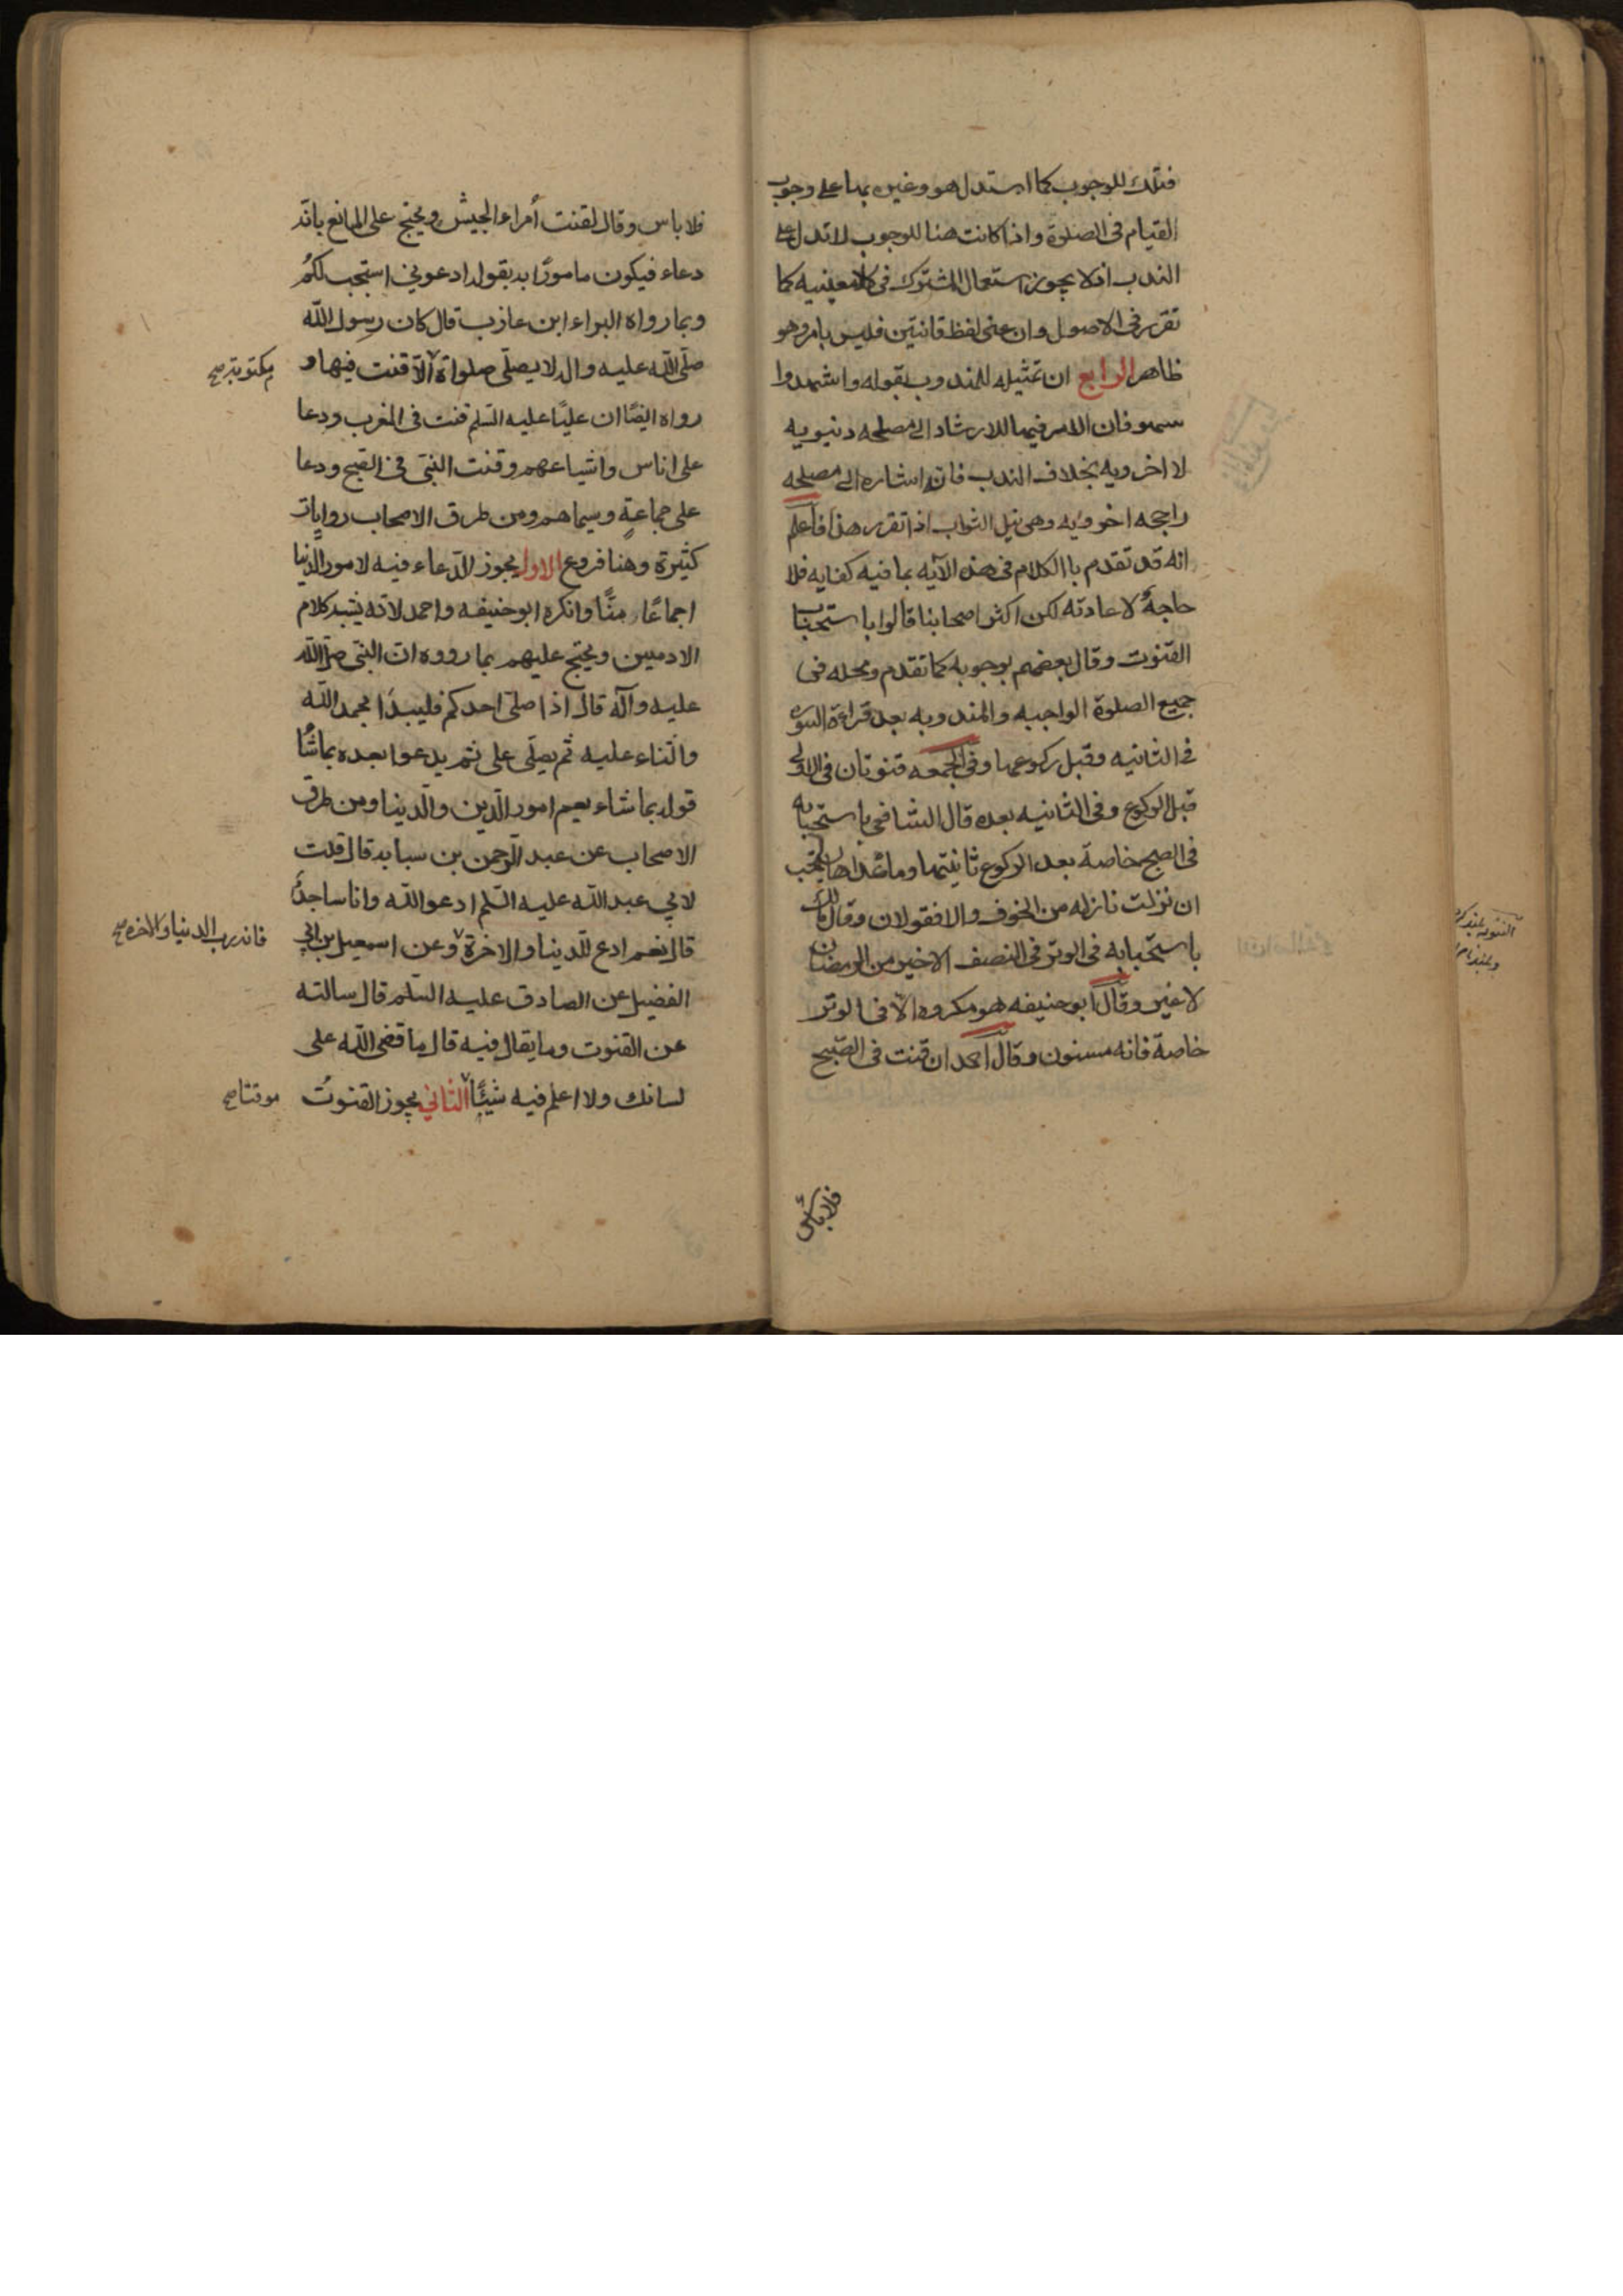 فتلك للوجوب كما استدل هو وغيره بها على وجوب
القيام فى الصلوة واذا كانت هنا للوجوب لا تدل على
الندب اذ لا يجوز استعمال المشترك فى كلا معنييه كما
تقرر فى الاصول وان عنى لفظ قانتين فليس بامر وهو
ظاهر الرابع ان تمثيله للمندوب بقوله واشهدوا
سهو فان الامر فيها للارشاد الى مصلحه دنيويه
لا اخرويه بخلاف الندب فانه اشاره الى مصلحه
راجحه اخرويه وهى نيل الثواب اذا تقرر هذا فاعلم
انه قد تقدم باالكلام فى هذه الآيه بما فيه كفايه فلا
حاجة لاعادته لكن اكثر اصحابنا قالوا باستحباب
القنوت وقال بعضهم بوجوبه كما تقدم ومحله فى
جميع الصلوة الواجبه والمندوبه بعد قراءة السوره
فى الثانيه وقبل ركوعها وفى الجمعه قنوتان فى الاولى
قبل الركوع وفى الثانيه بعده قال الشافعى باستحبابه
فى الصبح خاصة بعد الركوع ثانيتها وما عداها
ان نزلت نازله من الخوف والا فقولان وقال مالك
باستحبابه فى الوتر فى النصف الاخير من الرمضان
لا غير وقال ابو حنيفه هو مكروه الا فى الوتر
خاصة فانه مسنون وقال احمد ان قنت فى الصبح
فلا باس
فلا باس وقال لقنت أمراء الجيش ويحتج على المانع بانه
دعاء فيكون مامورًا به بقوله ادعونى استجب لكم
وبما رواه البراء ابن عازب قال كان رسول الله
صلى الله عليه واله لا يصلى صلواة الا قنت فيها و
مكتوبة صح
رواه ايضًا ان عليًا عليه السلم قنت فى المغرب ودعا
على اناس واشياعهم وقنت النبى فى الصبح ودعا
على جماعةٍ وسيماهم ومن طرق الاصحاب روايات
كثيرة وهنا فروع الاول يجوز الدعاء فيه لامور الدنيا
اجماعًا منّا وانكره ابو حنيفه واحمد لانه يشبه كلام
الادميين ويحتج عليهم بما رووه ان النبى صلى الله
عليه وآله قال اذا صلى احدكم فليبدَا بحمد الله
والثناء عليه ثم يصلى على ثم يدعوا بعده بما شاء
قوله بما شاء يعم امور الدين والدنيا ومن طرق
الاصحاب عن عبد الرحمن بن سبابه قال قلت
لابى عبد الله عليه السلم ادعو الله وانا ساجد
قال نعم ادع للدنيا والاخرة وعن اسمعيل بن ابى
فانه رب الدنيا والاخره صح
الفضيل عن الصادق عليه السلم قال سالته
عن القنوت وما يقال فيه قال ما قضى الله على
لسانك ولا اعلم فيه شيئًا الثانى يجوز القنوت
موقتا صح